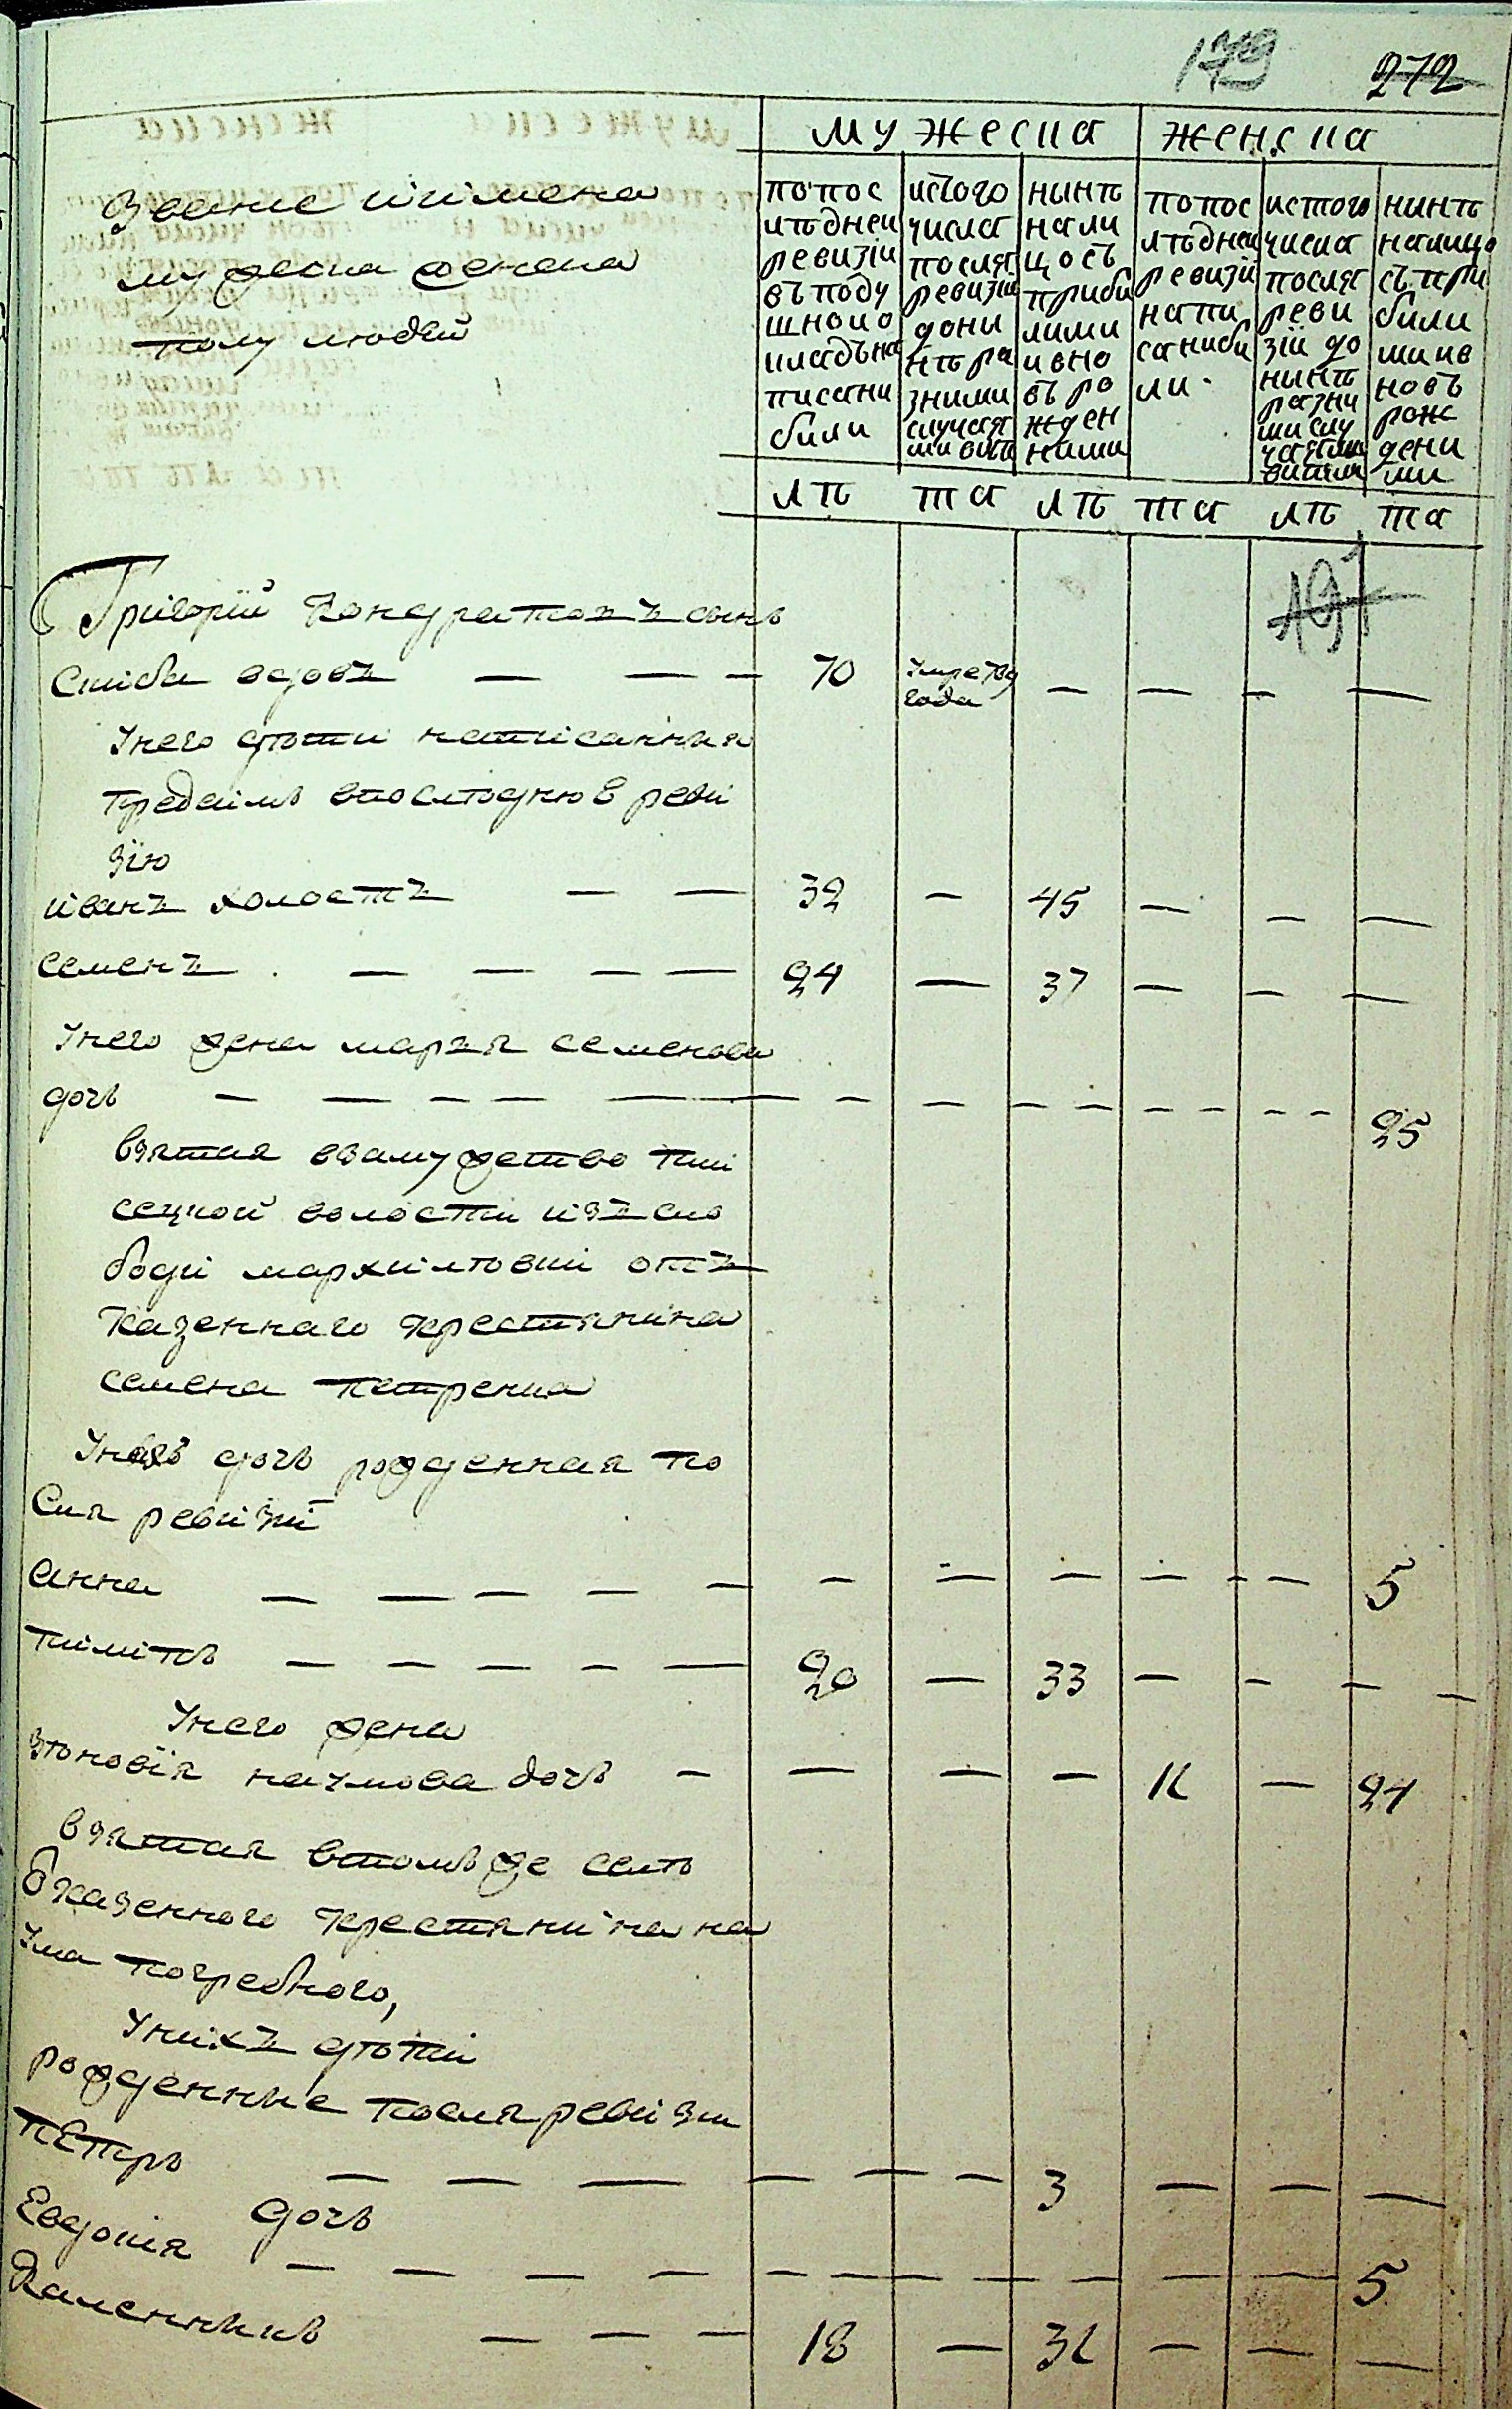 179 272
мужеска женска
Звание иимена
мужеска иженска
полу людей
попос
лѣднеи
ревизіи
въподу
шной о
кладъна
писани
били
истого
числа
послѣ
ревизіи
дони
нѣ ра
зними
случая
ми виби
нынѣ
нали
цосъ
приби
лими
ивно
въ ро
жден
ними
попос
лѣднеи
ревизіи
напи
саниби
ли
истого
числа
послѣ
реви
зіи до
нынѣ
разни
ми слу
чаями
нинѣ
налицо
съ при
били
ми ив
новъ
рож
дени
ми
лѣ та лѣ та лѣ та
Григорий Кондратовъ синъ
Скиба вдовъ — — — 70 Умре 789 — — — —
года
Унего дѣти написанныя
предъимъ впослѣднюю реви
зїю
иванъ холостъ — — 32 — 45 — — —
семенъ — — — — 24 — 37 — — —
Унего жена марья семенова
дочь — — — — — — — — — — — — — 25
взятая взамужество
сецкой волости изъ сло
боди мархилѣвки отъ
казеннаго крестянина
семена петренка
дочь рожденная по
сля ревизиї
анна — — — — — — — — — — — 5
пилипъ — — — — — 20 — 33 — — — —
Унего жена
зѣновїя наумова дочь — — — — 11 — 24
взятая втомъ же селѣ
казенного крестянина на
ума погребного,
Унихъ дѣти
рожденные посля ревизии
петръ — — — — — — 3 — — —
дочь
Евдокия — — — — — — — — — — 5
Каленникъ — — — 18 — 31 — — —